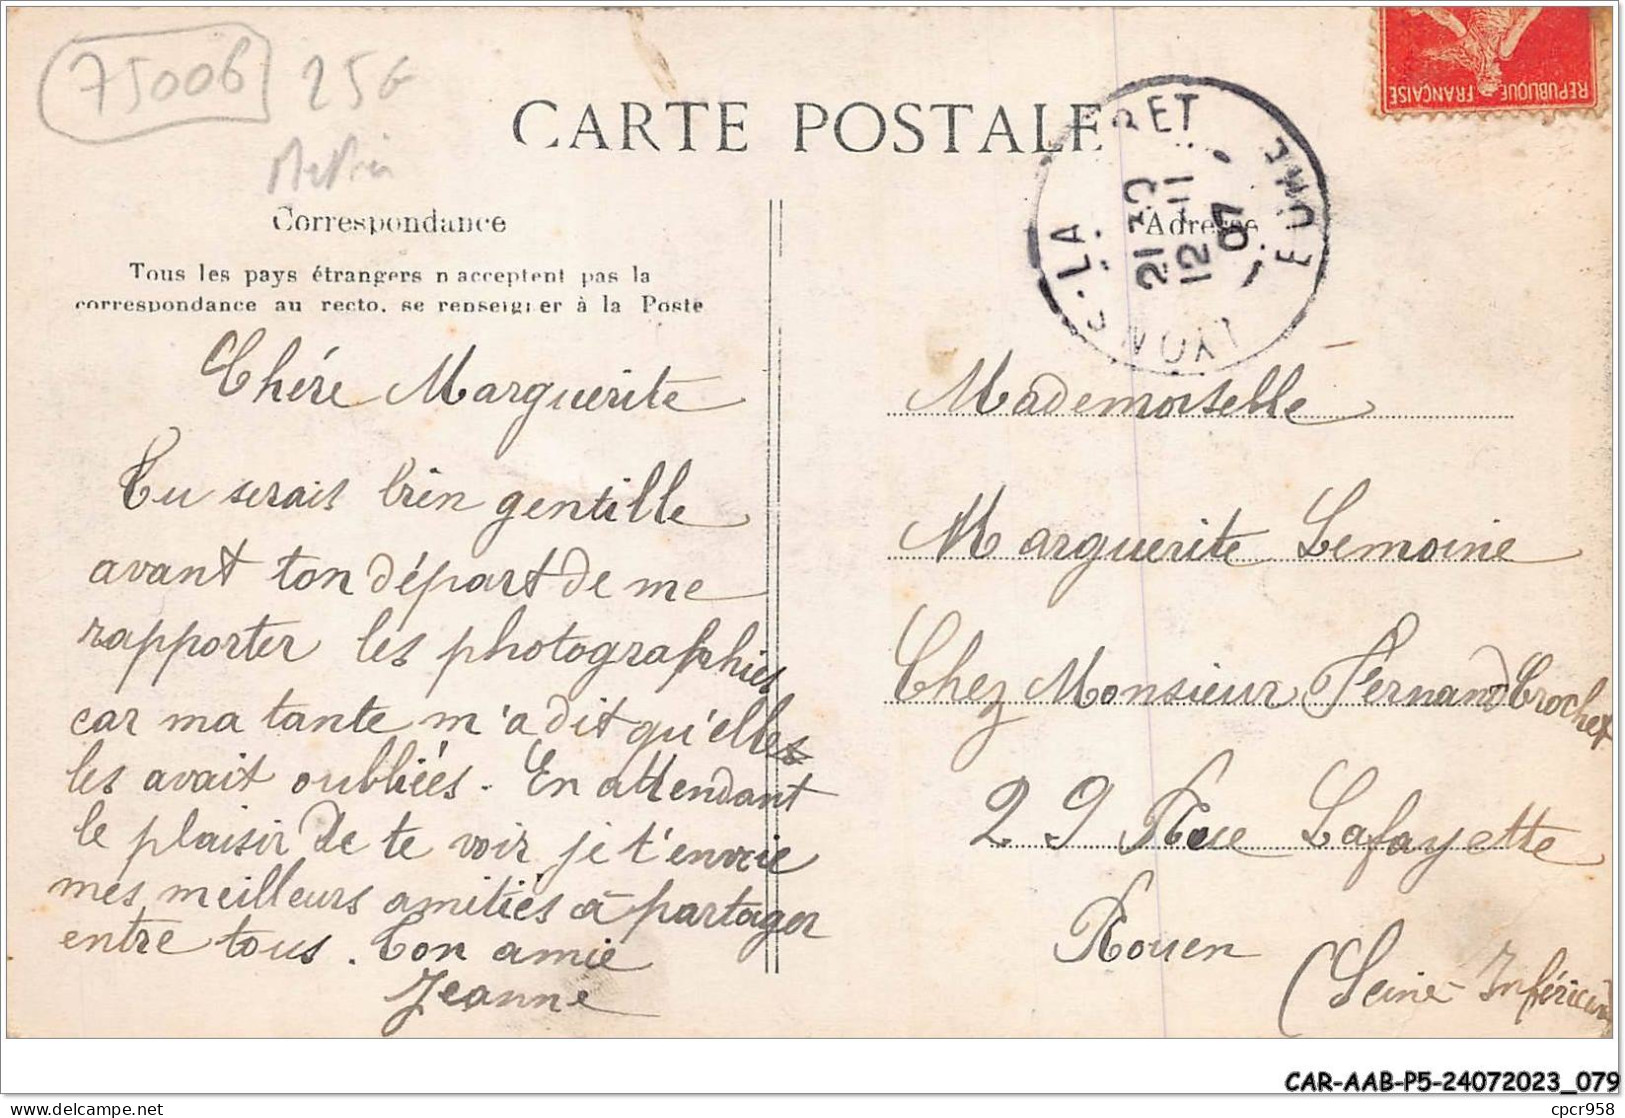 75006 25G
CARTE POSTALE
REPUBLIQUE FRANÇAISE
Correspondance
Tous les pays étrangers n'acceptent pas la
correspondance au recto, se renseigner à la Poste
Chére Marguerite
Tu serais bien gentille
avant ton départ de me
rapporter les photographies
car ma tante m'a dit qu'elle
les avait oubliées. En attendant
le plaisir de te voir je t'envoie
mes meilleurs amitiés à partager
entre tous. Ton amie
Jeanne
Adresse
LYON LA EURE
21 30
12 11
07
Mademoiselle
Marguerite Lemoine
Chez Monsieur Fernand Crochet
29 Rue Lafayette
Rouen
(Seine-Inférieure
CAR-AAB-P5-24072023_079
delcampe.net
cpcr958